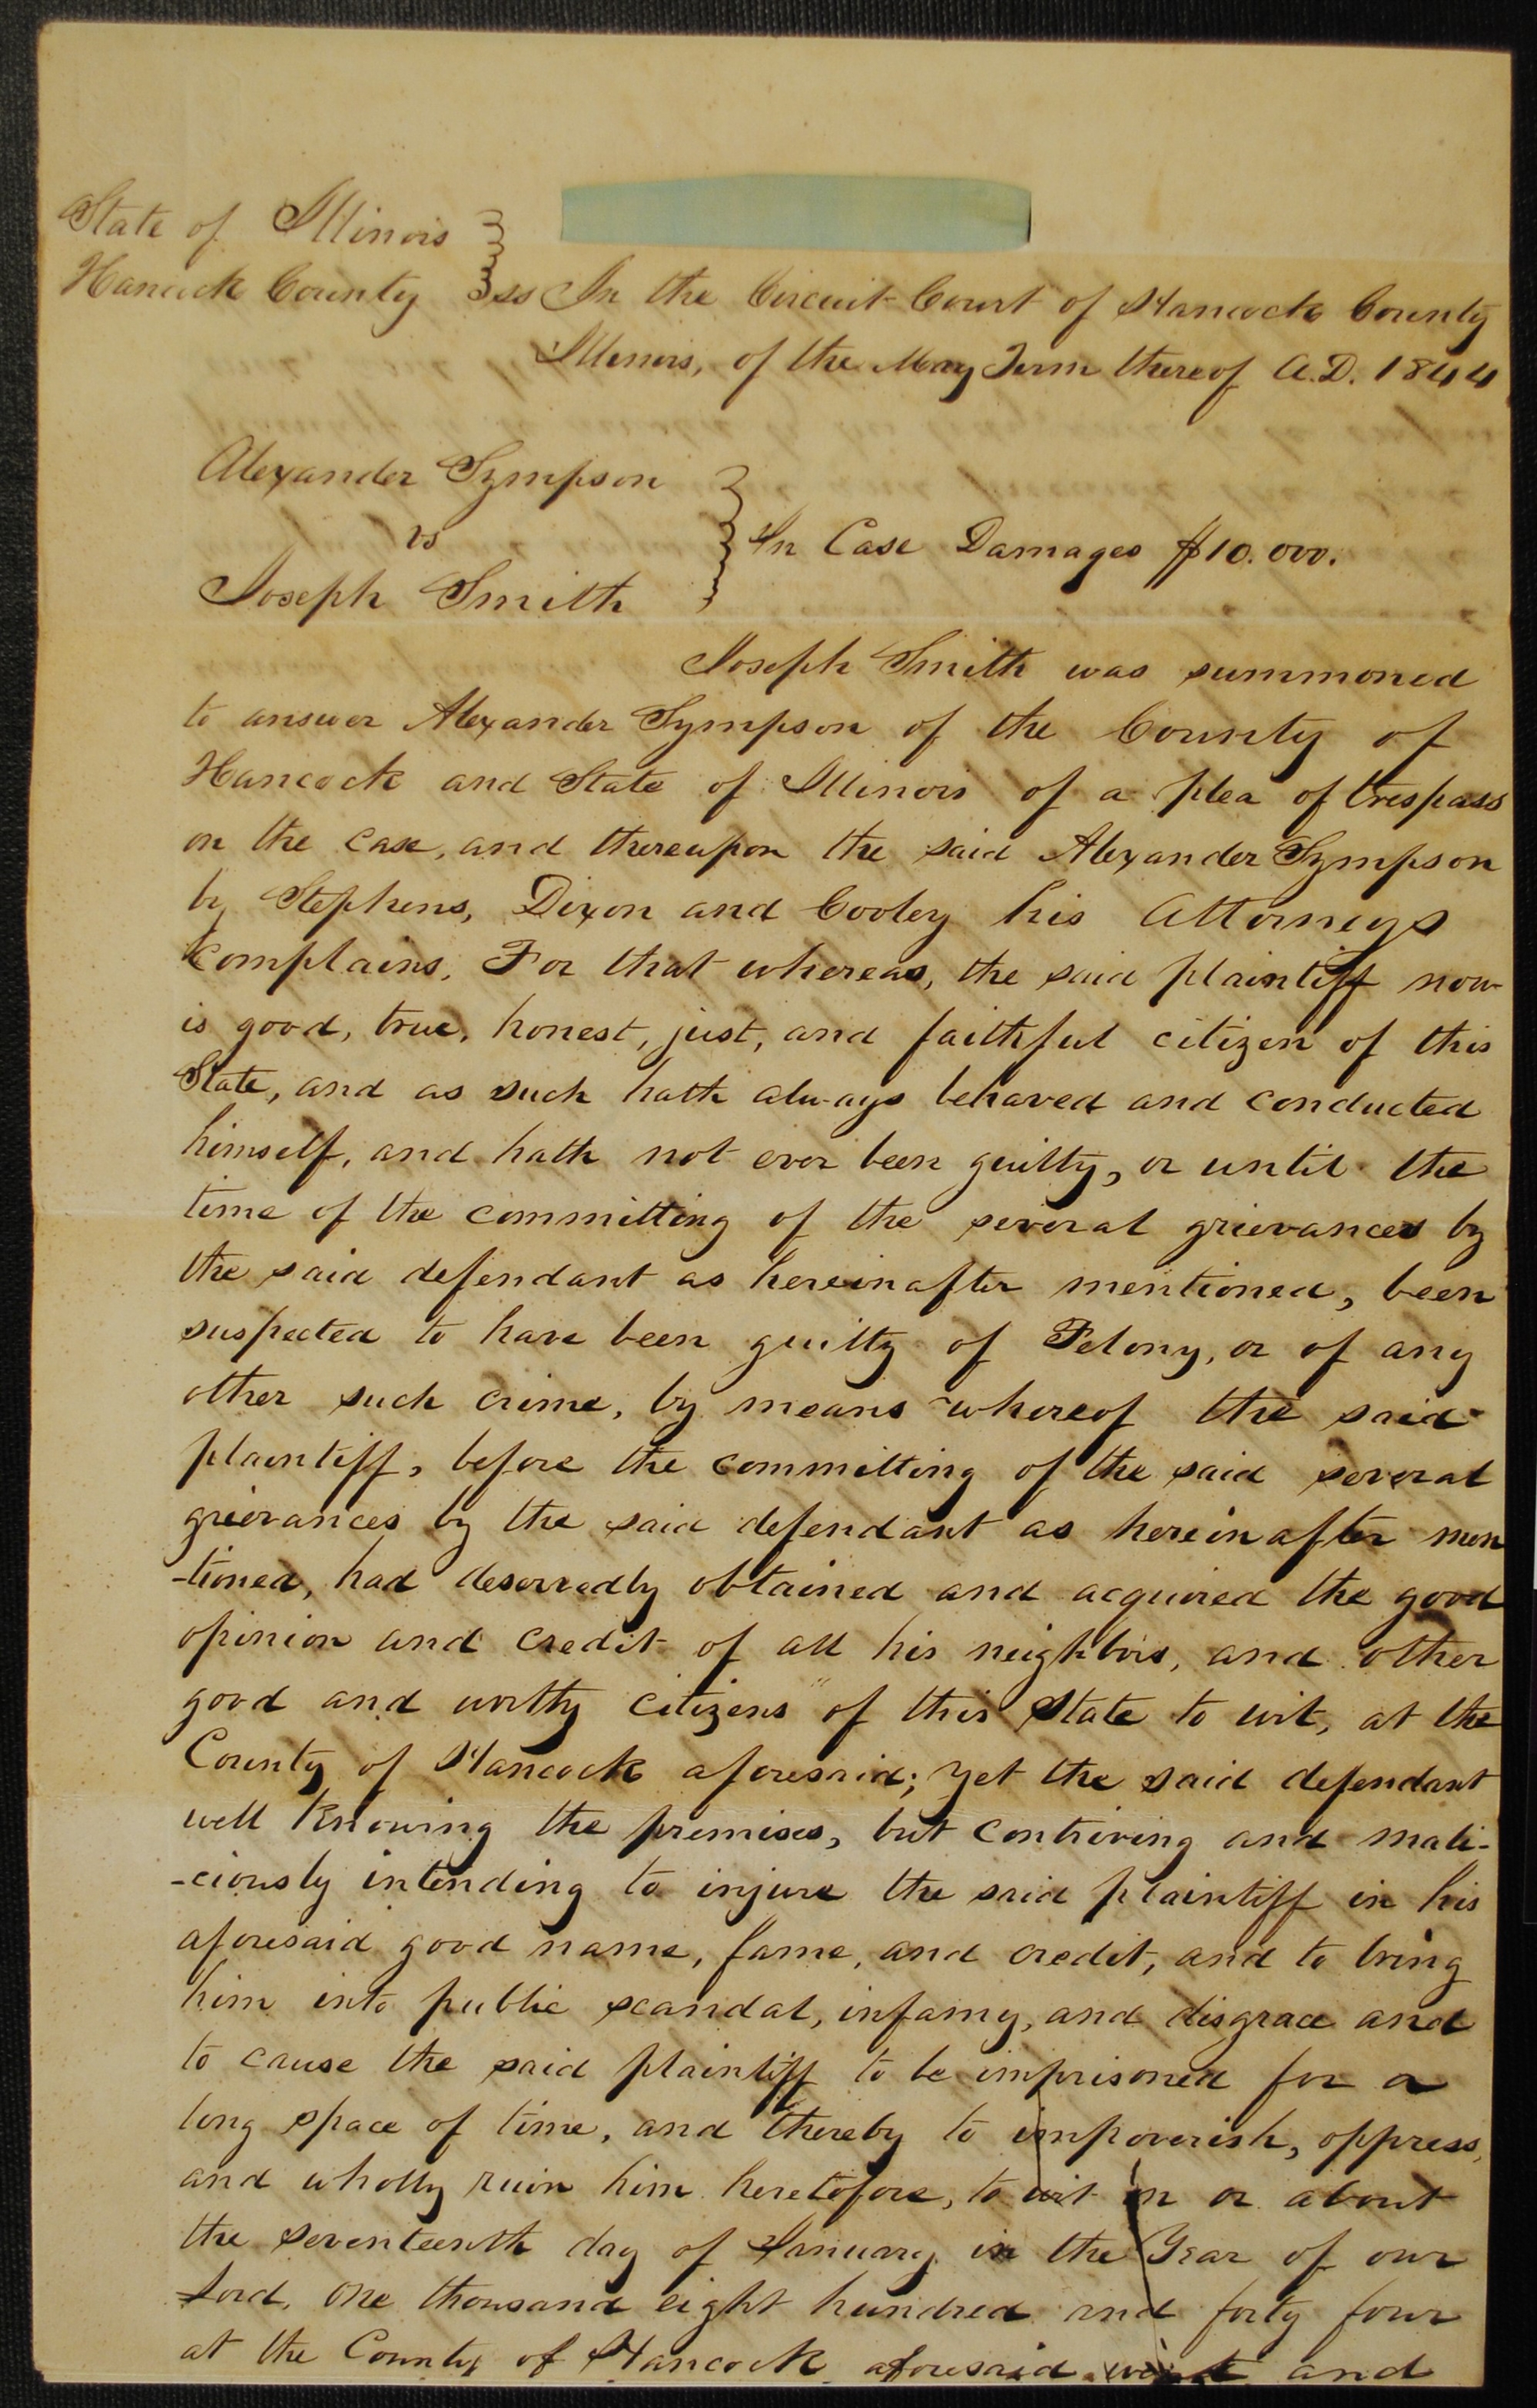 State of Illinois
Hancock County ss In the Circuit Court of Hancock County
Illinois, of the May Term thereof A.D. 1844
Alexander Sympson
vs
In Case Damages $10.000.
Joseph Smith
Joseph Smith was summoned
to answer Alexander Sympson of the County of
Hancock and State of Illinois of a plea of trespass
on the case, and thereupon the said Alexander Sympson
by Stephens, Dixon and Cooley his Attorneys
Complains, For that whereas, the said plaintiff now
is good, true, honest, just, and faithful citizen of this
State, and as such hath always behaved and conducted
himself, and hath not ever been guilty, or until the
time of the committing of the several grievances by
the said defendant as hereinafter mentioned, been
suspected to have been guilty of Felony, or of any
other such crime, by means whereof the said
plaintiff, before the committing of the said several
grievances by the said defendant as hereinafter men
-tioned, had deservedly obtained and acquired the good
opinion and credit of all his neighbors, and other
good and worthy citizens of this State to wit, at the
County of Hancock aforesaid; yet the said defendant
well knowing the premises, but contriving and mali-
-ciously intending to injure the said plaintiff in his
aforesaid good name, fame, and credit, and to bring
him into public scandal, infamy, and disgrace and
to cause the said plaintiff to be imprisoned for a
long space of time, and thereby to impoverish, oppress,
and wholly ruin him heretofore, to wit in or about
the seventeenth day of January in the Year of our
Lord, One thousand eight hundred and forty four
at the County of Hancock aforesaid went and